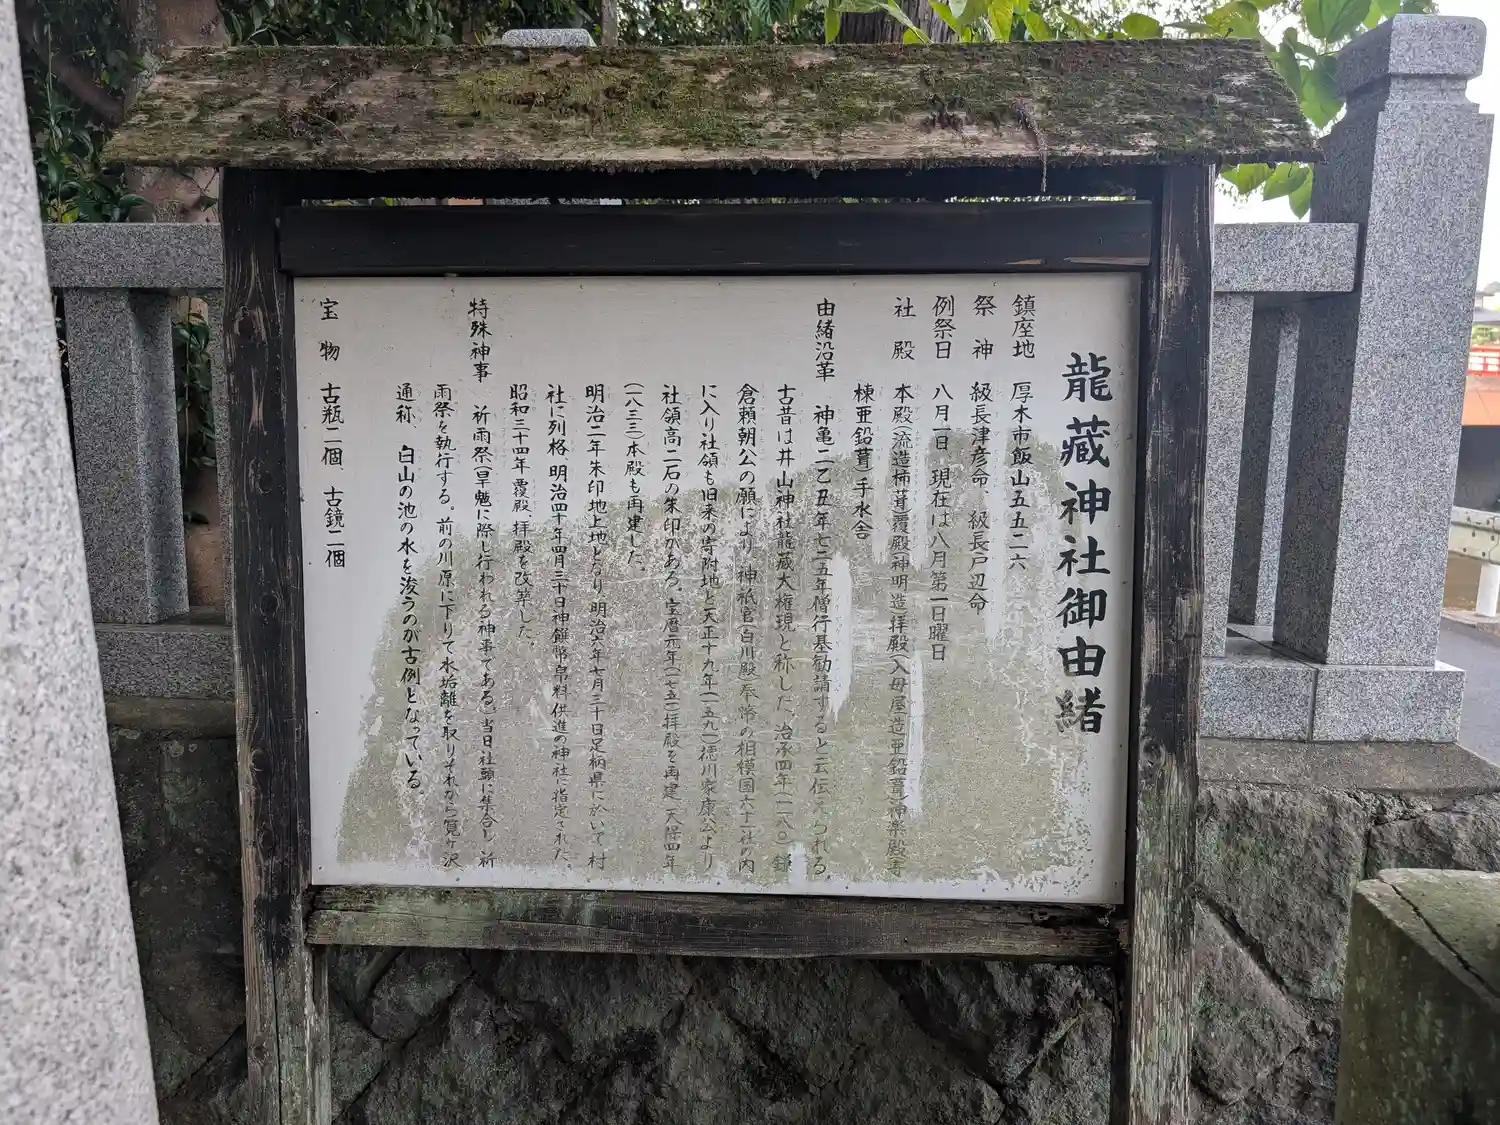 龍蔵神社御由緒
鎮座地 厚木市飯山五五二六
祭神 級長津彦命、級長戸辺命
例祭日 八月一日 現在は八月第一日曜日
社殿 本殿(流造柿葺)覆殿(神明造)拝殿(入母屋造亜鉛葺)神楽殿(寺
棟亜鉛葺)手水舎
由緒沿革 神亀二乙丑年七二五年僧行基勧請すると云伝えつれる。
古昔は井山神社龍蔵大権現と称した。治承四年(一一八〇)鎌
倉頼朝公の願により(神祇官白川殿)奉幣の相模国六十一社の内
に入り社領も旧来の寄附地と天正十九年(一五九一)徳川家康公より
社領高二石の朱印がある。宝暦元年(一七五一)拝殿を再建(天保四年
(一八三三)本殿も再建した。
明治二年朱印地上地となり、明治六年七月三十日足柄県に於いて村
社に列格、明治四十年四月三十日神饌幣帛料供進の神社に指定された。
昭和三十四年覆殿、拝殿を改築した。
特殊神事 祈雨祭(旱魃に際し行われる神事である。当日社頭に集合し祈
雨祭を執行する。前の川原に下りて水垢離を取りそれから寛ヶ沢
通称、白山の池の水を浚うのが古例となっている。
宝物 古瓶二個 古鏡二個